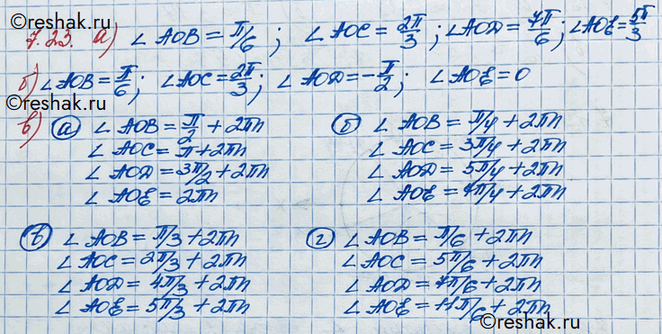 ©reshak.ru
7.23. а) ∠AOB = π/6; ∠AOC = 2π/3; ∠AOD = 7π/6; ∠AOE = 5π/3
б) ∠AOB = π/6; ∠AOC = 2π/3; ∠AOD = -π/2; ∠AOE = 0
©reshak.ru
в) а) ∠AOB = π/2 + 2πn
∠AOC = π + 2πn
∠AOD = 3π/2 + 2πn
∠AOE = 2πn
б) ∠AOB = π/4 + 2πn
∠AOC = 3π/4 + 2πn
∠AOD = 5π/4 + 2πn
∠AOE = 7π/4 + 2πn
в) ∠AOB = π/3 + 2πn
∠AOC = 2π/3 + 2πn
∠AOD = 4π/3 + 2πn
∠AOE = 5π/3 + 2πn
г) ∠AOB = π/6 + 2πn
∠AOC = 5π/6 + 2πn
∠AOD = 7π/6 + 2πn
∠AOE = 11π/6 + 2πn
©reshak.ru